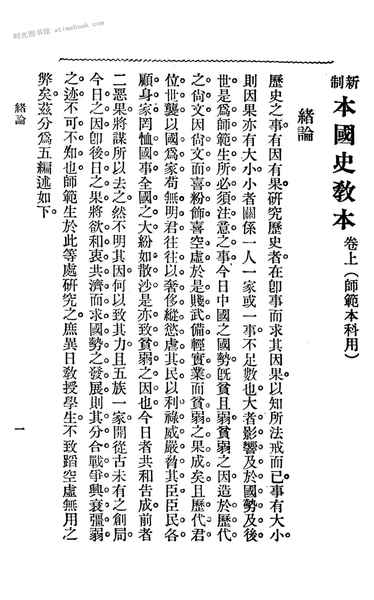 时光图书馆 etimebook.com
新制本國史教本 卷上(師範本科用)
緒論
歷史之事有因有果研究歷史者在卽事而求其因果以知所法戒而已。事有大小。
則因果亦有大小。小者關係一人一家或一事不足數也。大者影響及於國勢及後
世。是爲師範生所必須注意之事。今日中國之國勢旣貧且弱。貧弱之因造於歷代
之尙文。因尙文而喜粉飾喜空虛。於是賤武備輕實業而貧弱之果成矣。且歷代君
位世襲。以國爲家。苟無明君。往往以奢侈縱慾虐其民。以利祿威嚴脅其臣。臣民各
顧身家。罔恤國事。全國之大。紛如散沙。是亦致貧弱之因也。今日者共和告成。前者
二惡果將謀所以去之。然不明其因。何以致其力。且五族一家。開從古未有之創局。
今日之因。卽後日之果。將欲和衷共濟而求國勢之發展。則其分合戰爭興衰彊弱
之迹。不可不知也。師範生於此等處研究之。庶異日敎授學生。不致蹈空虛無用之
弊矣。茲分爲五編述如下。
緒論
一